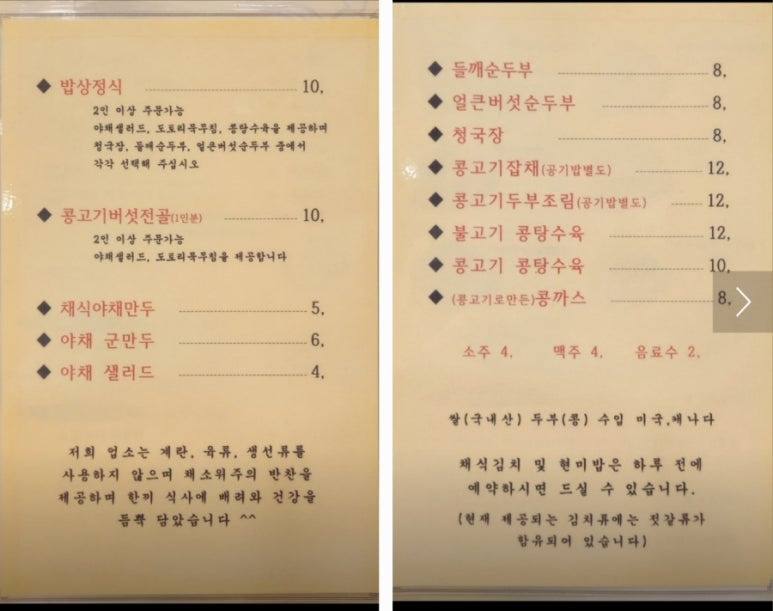 ◆ 밥상정식 10,
2인 이상 주문가능
야채샐러드, 도토리묵무침, 콩탕수육을 제공하며
청국장, 들깨순두부, 얼큰버섯순두부 중에서
각각 선택해 주십시오
◆ 콩고기버섯전골(1인분) 10,
2인 이상 주문가능
야채샐러드, 도토리묵무침을 제공합니다
◆ 채식야채만두 5,
◆ 야채 군만두 6,
◆ 야채 샐러드 4,
저희 업소는 계란, 육류, 생선류를
사용하지 않으며 채소위주의 반찬을
제공하며 한끼 식사에 배려와 건강을
듬뿍 담았습니다 ^^
◆ 들깨순두부 8,
◆ 얼큰버섯순두부 8,
◆ 청국장 8,
◆ 콩고기잡채(공기밥별도) 12,
◆ 콩고기두부조림(공기밥별도) 12,
◆ 불고기 콩탕수육 12,
◆ 콩고기 콩탕수육 10,
◆ (콩고기로만든)콩까스 8,
소주 4, 맥주 4, 음료수 2,
쌀(국내산) 두부(콩) 수입 미국,캐나다
채식김치 및 현미밥은 하루 전에
예약하시면 드실 수 있습니다.
(현재 제공되는 김치류에는 젓갈류가
함유되어 있습니다)